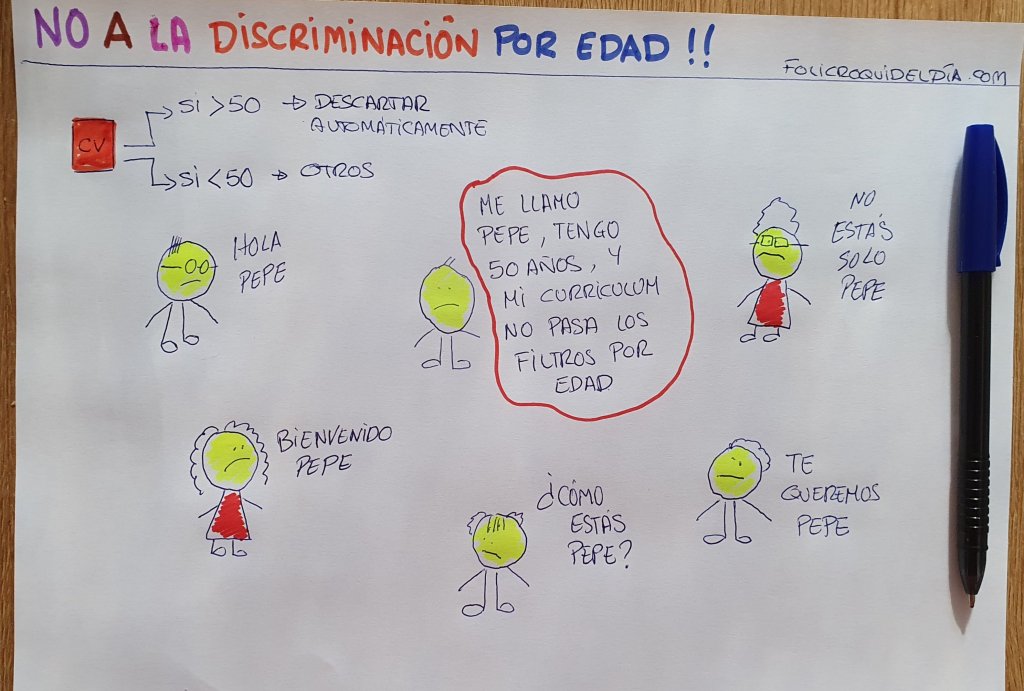 NO A LA DISCRIMINACIÓN POR EDAD !!
FOLICROQUIDELDÍA.COM
CV
SI >50 → DESCARTAR
AUTOMÁTICAMENTE
SI <50 → OTROS
HOLA
PEPE
ME LLAMO
PEPE, TENGO
50 AÑOS, Y
MI CURRICULUM
NO PASA LOS
FILTROS POR
EDAD
NO
ESTÁS
SOLO
PEPE
BIENVENIDO
PEPE
¿CÓMO
ESTÁS
PEPE?
TE
QUEREMOS
PEPE